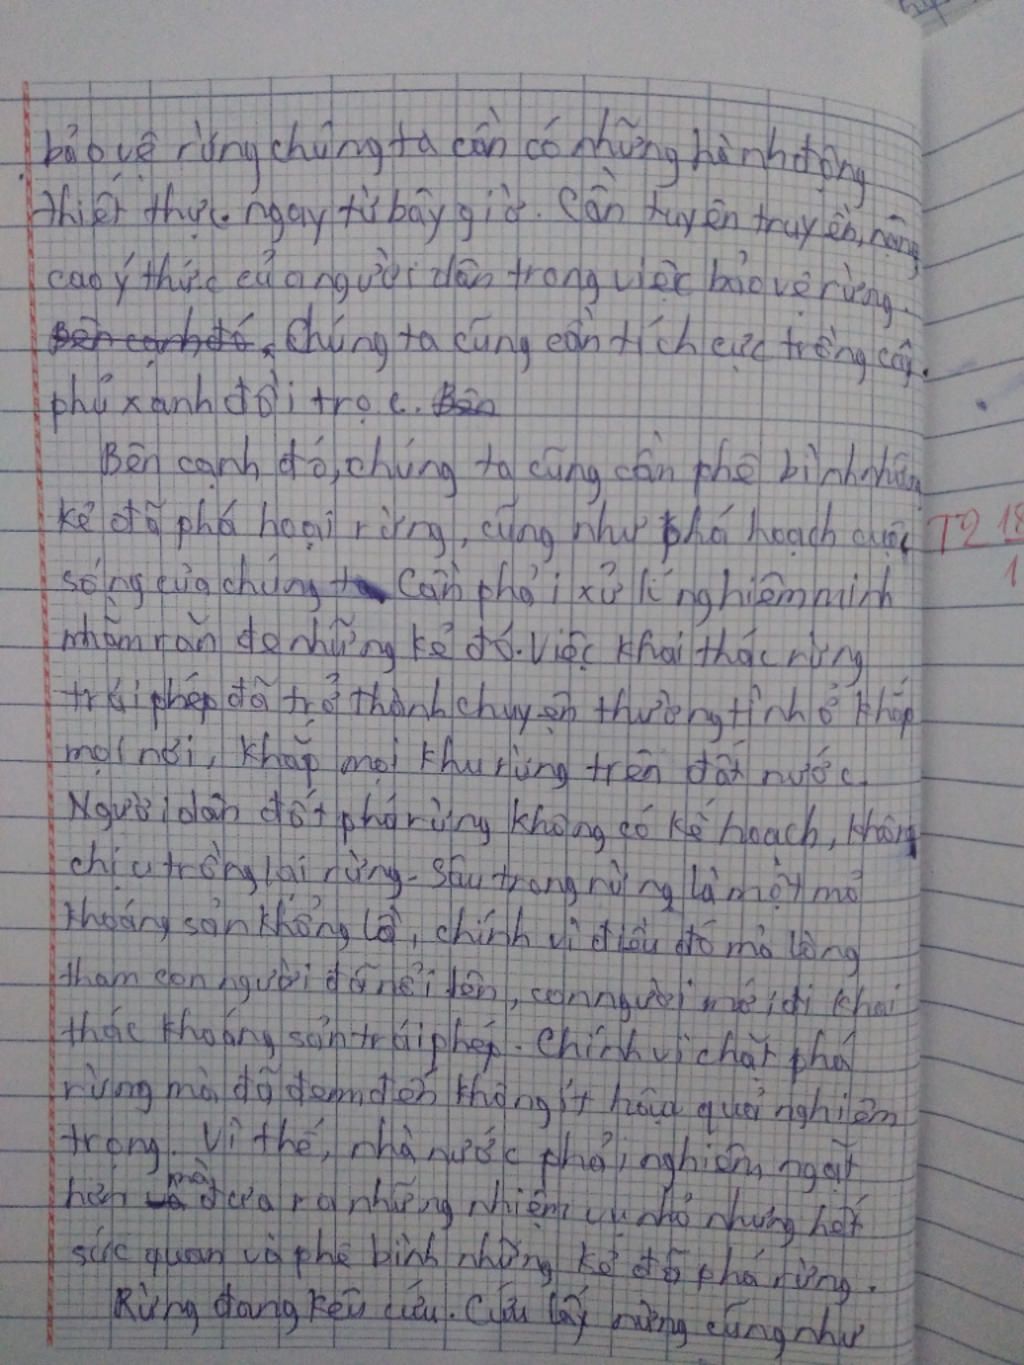 bảo vệ rừng chúng ta cần có những hành động
thiết thực ngay từ bây giờ. Cần tuyên truyền, nâng
cao ý thức của người dân trong việc bảo vệ rừng.
Bên cạnh đó, chúng ta cũng cần tích cực trồng cây
phủ xanh đồi trọc. Bên
Bên cạnh đó, chúng ta cũng cần phê bình những
kẻ đã phá hoại rừng, cũng như phá hoạch cuộc
sống của chúng ta Cần phải xử lí nghiêm minh
nhằm răn đe những kẻ đó. Việc khai thác rừng
trái phép đã trở thành chuyện thường tình ở khắp
mọi nơi, khắp mọi khu rừng trên đất nước.
Người dân đốt phá rừng không có kế hoạch, không
chịu trồng lại rừng. Sâu trong rừng là một mỏ
khoáng sản khổng lồ, chính vì điều đó mà lòng
tham con người đã nổi lên, con người mới đi khai
thác khoáng sản trái phép. Chính vì chặt phá
rừng mà đã đem đến không ít hậu quả nghiêm
trọng. Vì thế, nhà nước phải nghiêm ngặt
hơn mà đưa ra những nhiệm vụ nhỏ nhưng hết
sức quan và phê bình những kẻ đã phá rừng.
Rừng đang kêu cứu. Cứu lấy rừng cũng như
T2 18
1